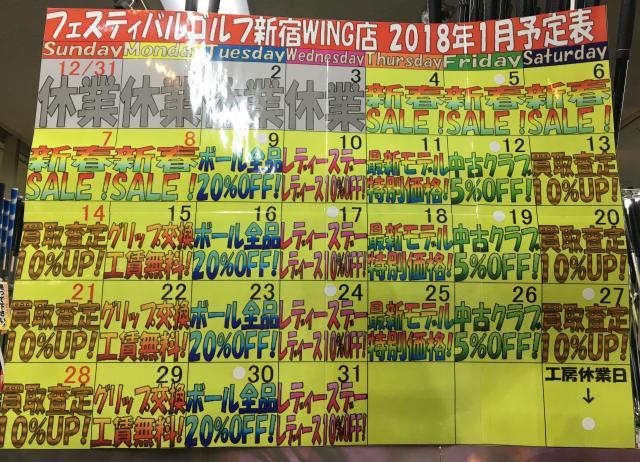 フェスティバルゴルフ新宿WING店 2018年1月予定表
Sunday Monday Tuesday Wednesday Thursday Friday Saturday
12/31 2 3 4 5 6
休業 休業 休業 休業 新春 新春 新春
SALE! SALE! SALE!
7 8 9 10 11 12 13
新春 新春 ボール全品 レディースデー 最新モデル 中古クラブ 買取査定
SALE! SALE! 20%OFF! レディース10%OFF! 特別価格! 5%OFF! 10%UP!
14 15 16 17 18 19 20
買取査定 グリップ交換 ボール全品 レディースデー 最新モデル 中古クラブ 買取査定
10%UP! 工賃無料! 20%OFF! レディース10%OFF! 特別価格! 5%OFF! 10%UP!
21 22 23 24 25 26 27
買取査定 グリップ交換 ボール全品 レディースデー 最新モデル 中古クラブ 買取査定
10%UP! 工賃無料! 20%OFF! レディース10%OFF! 特別価格! 5%OFF! 10%UP!
28 29 30 31 工房休業日
買取査定 グリップ交換 ボール全品 レディースデー ↓
10%UP! 工賃無料! 20%OFF! レディース10%OFF!